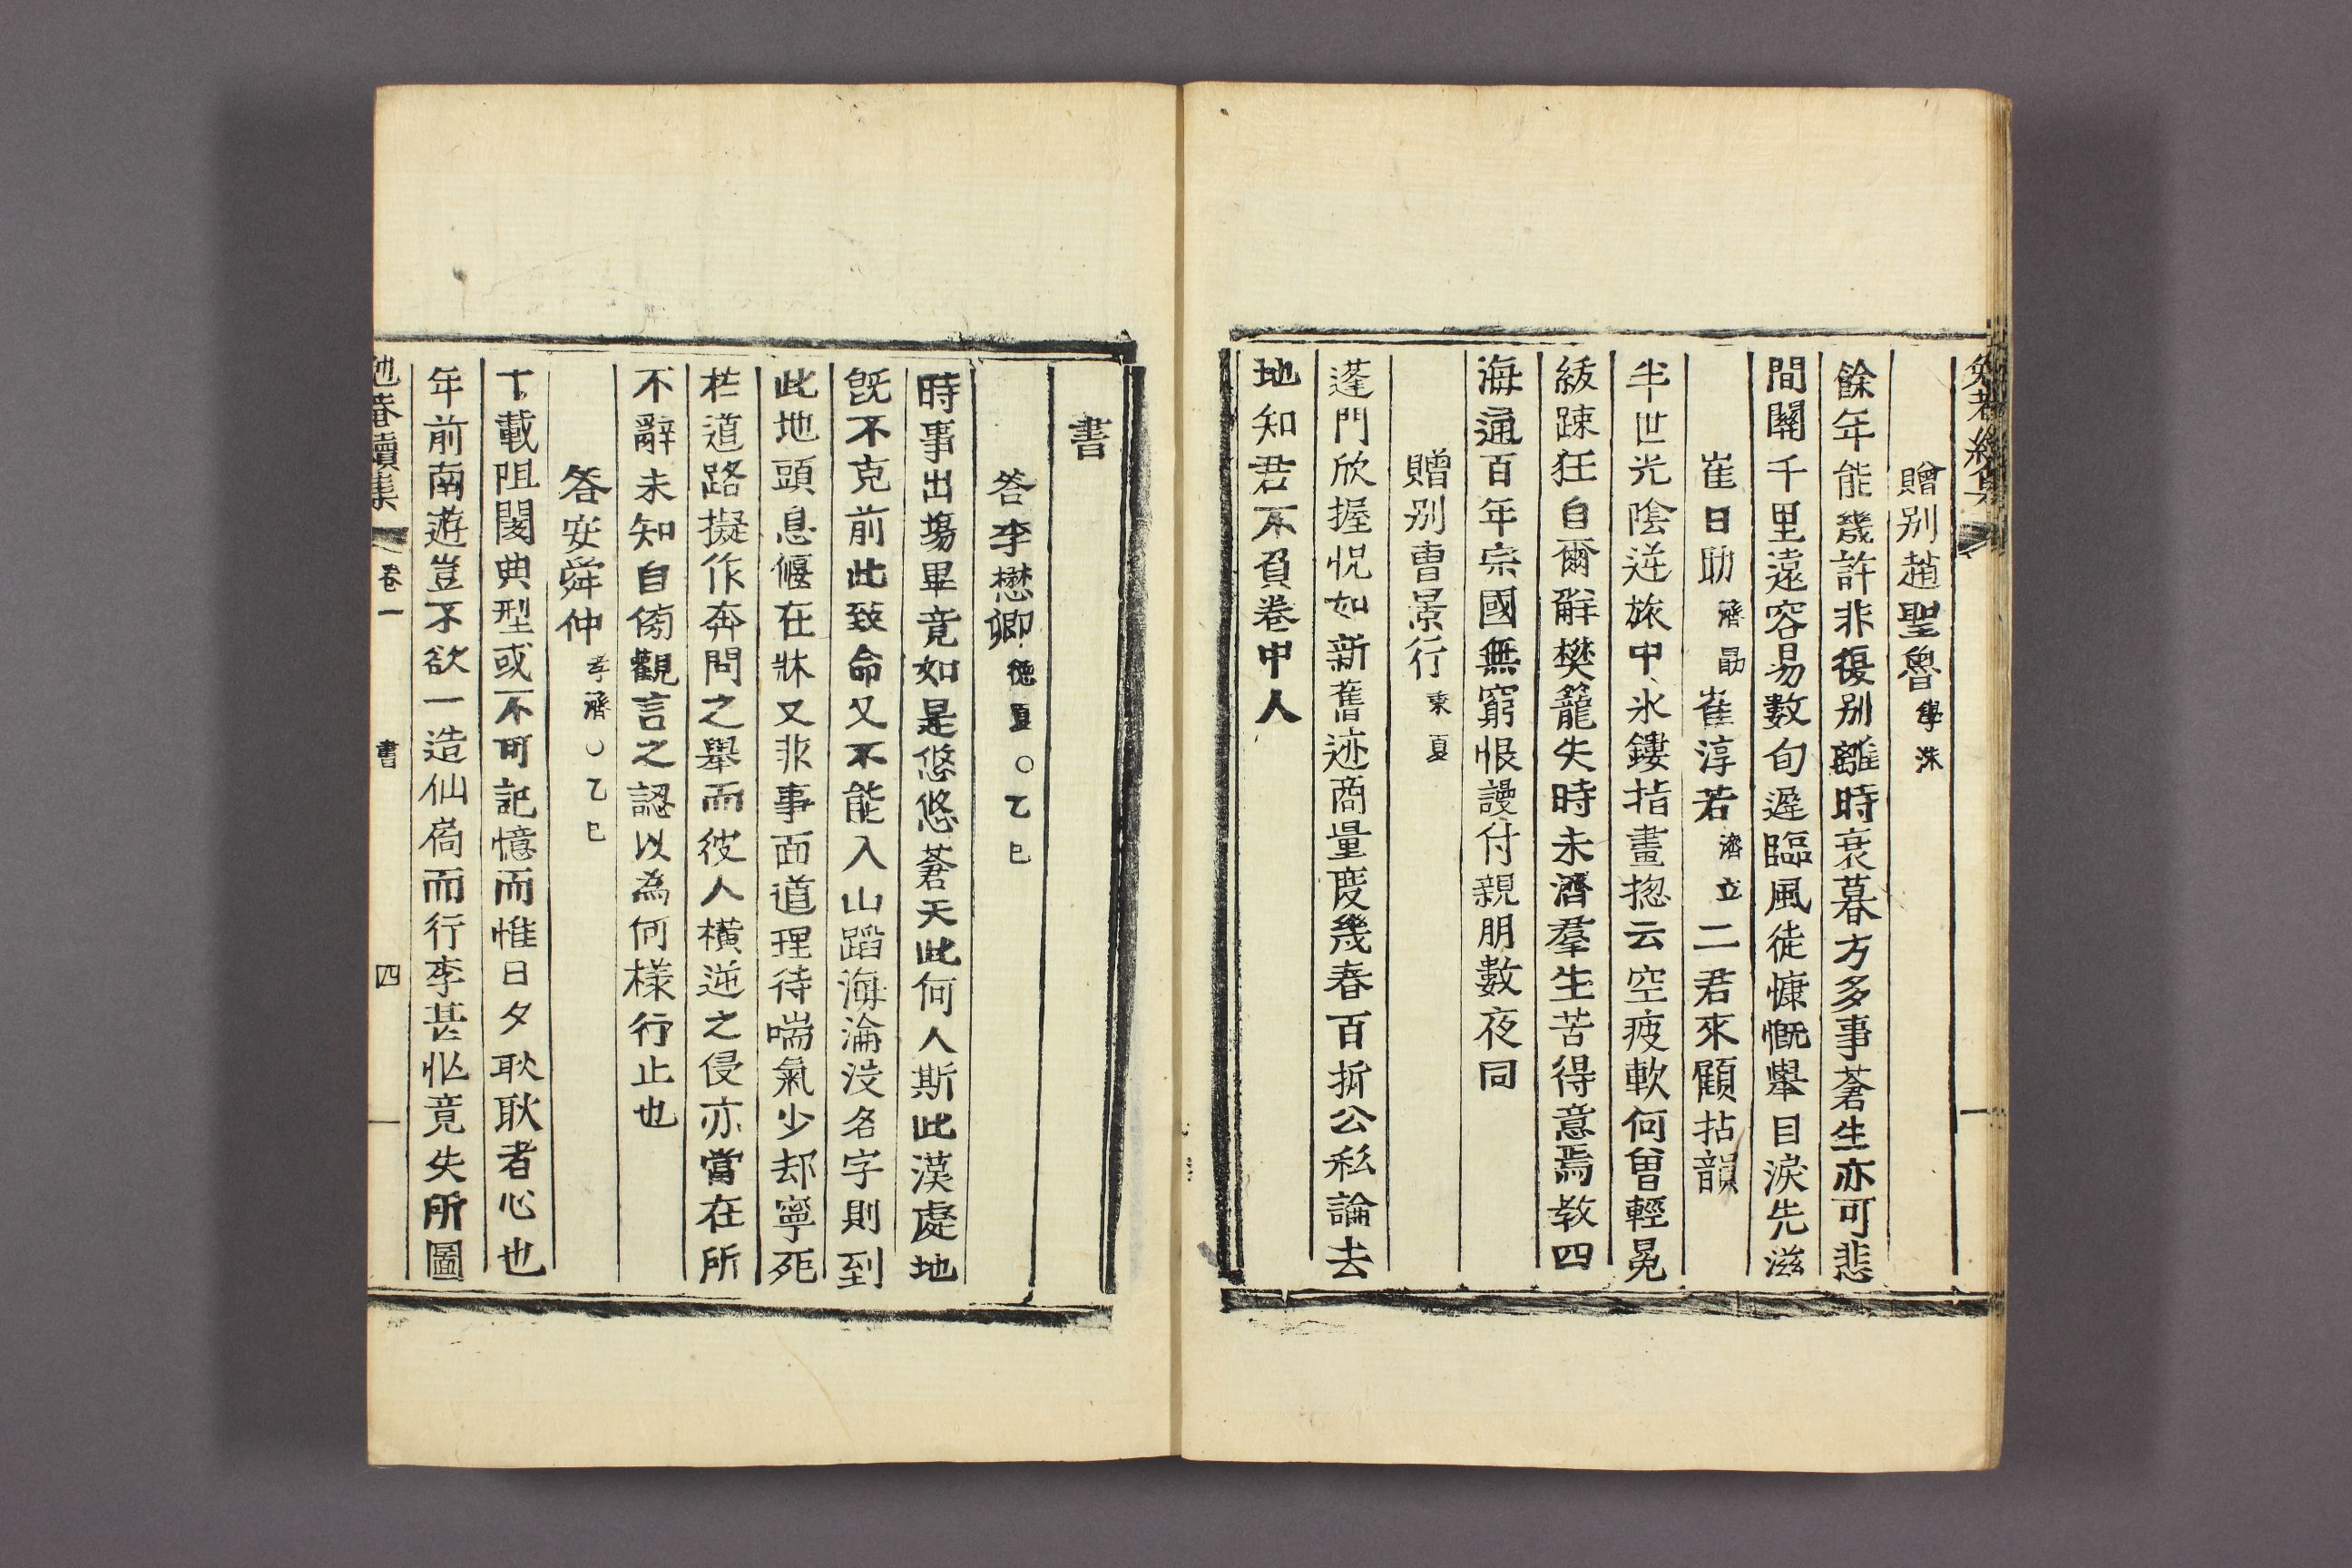 贈別趙聖魯 學洙
餘年能幾許非復別離時衰暮方多事蒼生亦可悲
間關千里遠容易數旬遲臨風徒慷慨擧目淚先滋
崔日助 濟勗 崔淳若 濟立 二君來顧拈韻
半世光陰逆旅中氷鏤指畫揔云空疲軟何曾輕冕
紱踈狂自爾觧樊籠失時未濟羣生苦得意焉教四
海通百年宗國無窮恨謾付親朋數夜同
贈別曺景行 秉夏
蓬門欣握怳如新舊迹商量度幾春百折公私論去
地知君不負卷中人
書
答李懋卿 德夏○乙巳
時事出塲畢竟如是悠悠蒼天此何人斯此漢處地
旣不克前此致命又不能入山蹈海淪沒名字則到
此地頭息偃在牀又非事面道理待喘氣少却寧死
於道路擬作奔問之擧而彼人橫逆之侵亦當在所
不辭未知自傍觀言之認以為何樣行止也
答安舜仲 孝濟○乙巳
十載阻閡典型或不可記憶而惟日夕耿耿者心也
年前南遊豈不欲一造仙扃而行李甚忙竟失所圖
卷一 書 四